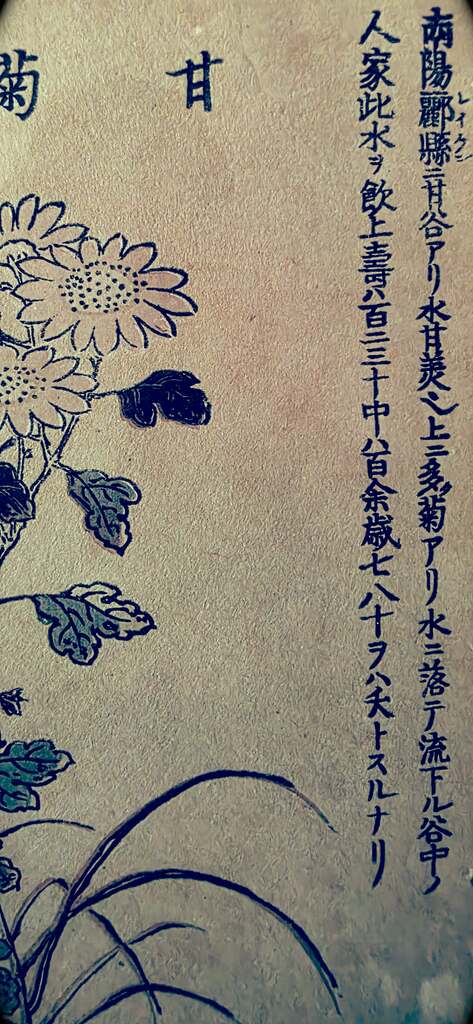 南陽酈縣ニ甘谷アリ水甘美也上ニ多ク菊アリ水ニ落テ流下ル谷中ノ
レイケン
人家此水ヲ飲上壽ハ百二三十中ハ百余歳七八十ヲハ夭トスルナリ
甘菊